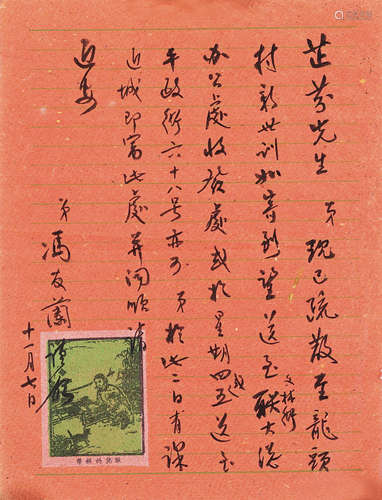 芷芬先生 弟 現已疏散至龍頭
村新世訓如寄到望送至文林街聯大
办公處收發處或於星期四五送至
平政街六十八号亦可 弟於此二日有課
近城即寓此處并聞順請
近安
弟 馮友蘭 謹啓
十一月七日